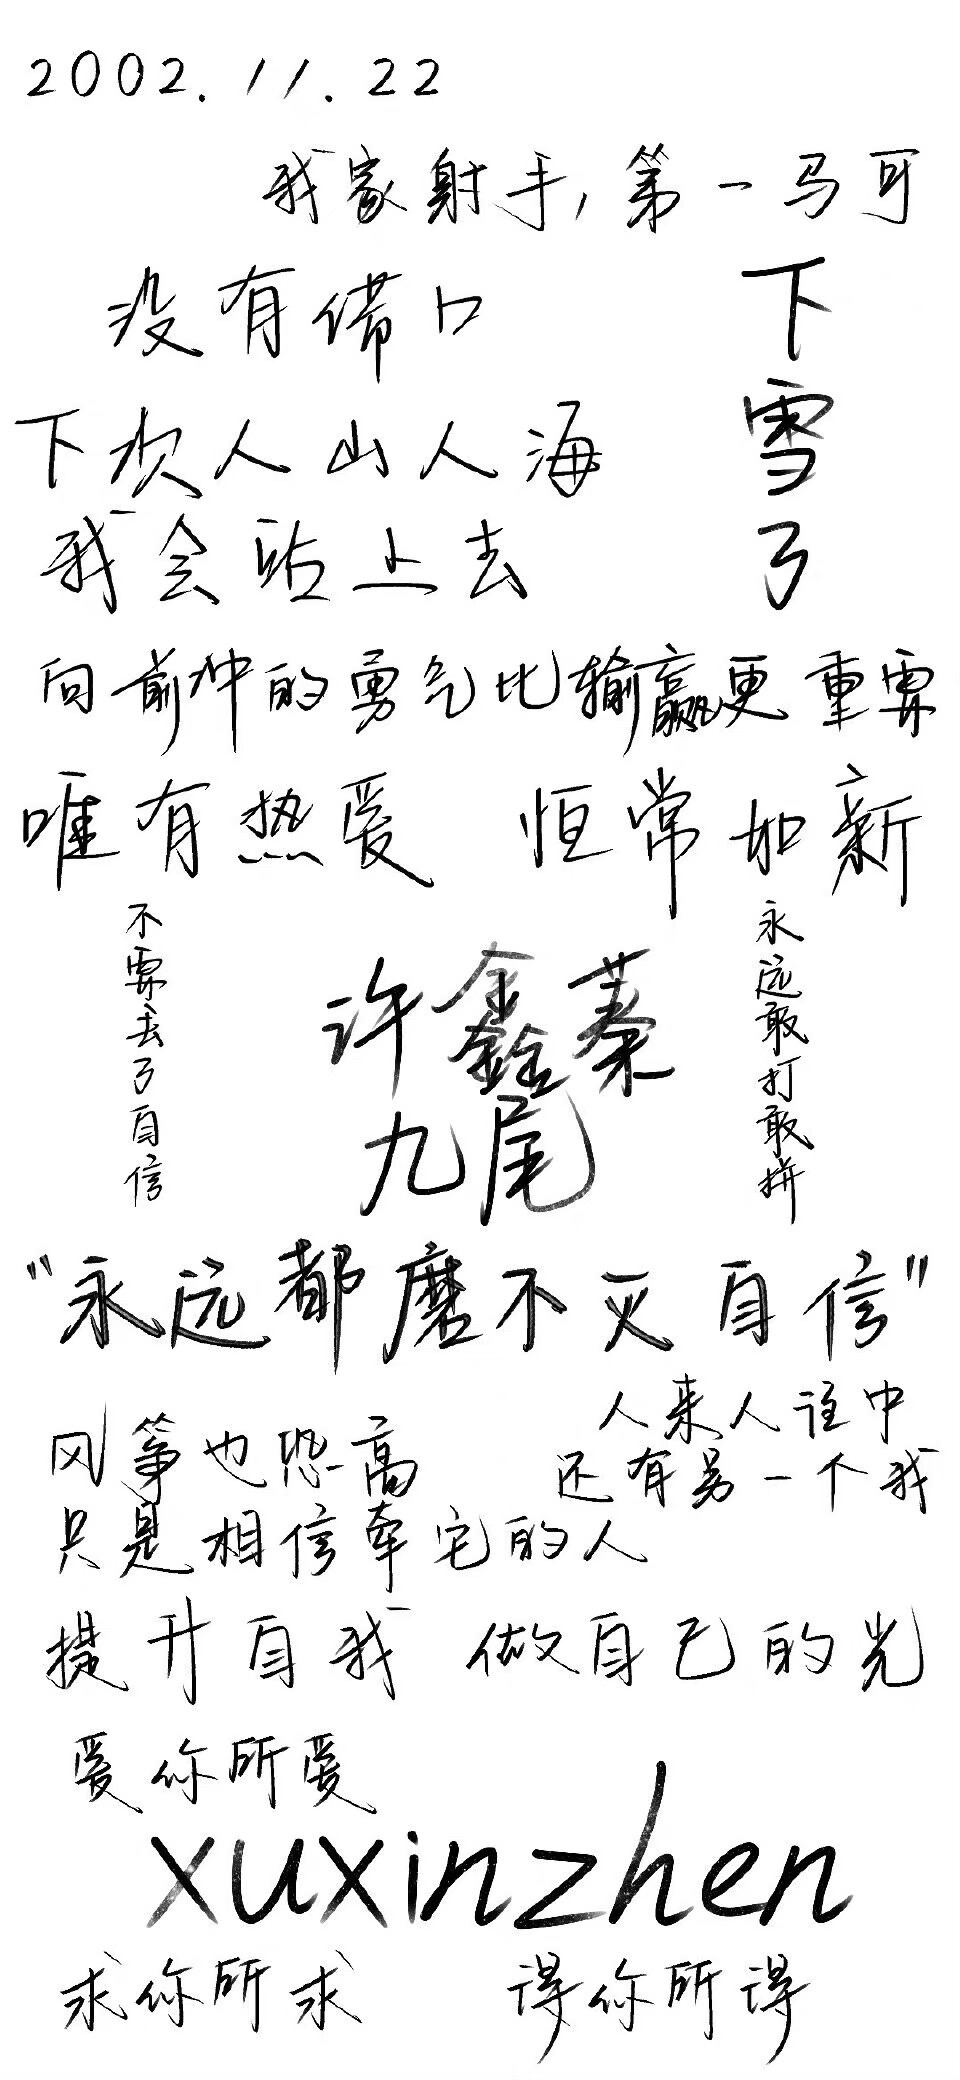 2002.11.22
我家射手,第一马可
没有借口
下雪了
下次人山人海
我会站上去
向前冲的勇气比输赢更重要
唯有热爱 恒常如新
不要丢了自信
许鑫蓁
九尾
永远敢打敢拼
"永远都磨不灭自信"
人来人往中
还有另一个我
风筝也恐高
只是相信牵它的人
提升自我 做自己的光
爱你所爱
xuxinzhen
求你所求 得你所得